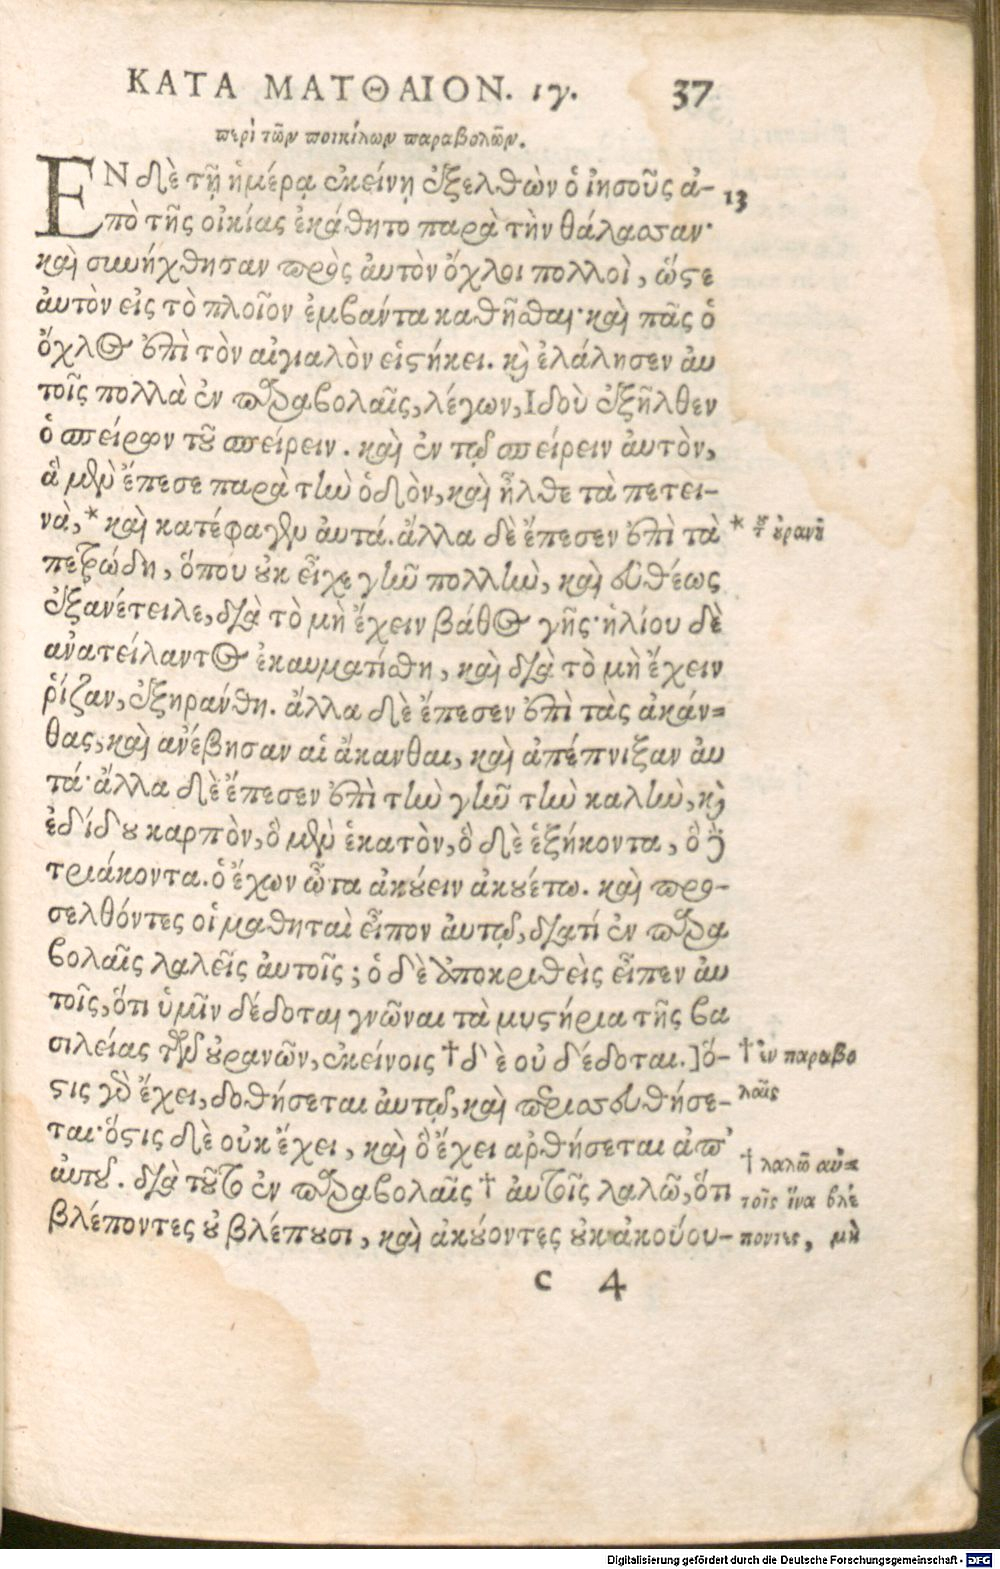 ΚΑΤΑ ΜΑΤΘΑΙΟΝ. ιγ. 37
περὶ τῶν ποικίλων παραβολῶν.
ΕΝ δὲ τῇ ἡμέρᾳ ἐκείνῃ ἐξελθὼν ὁ ἰησοῦς ἀ- 13
πὸ τῆς οἰκίας ἐκάθητο παρὰ τὴν θάλασσαν·
καὶ συνήχθησαν πρὸς ἀυτὸν ὄχλοι πολλοὶ, ὥστε
ἀυτὸν εἰς τὸ πλοῖον ἐμβαίντα καθῆσθαι· καὶ πᾶς ὁ
ὄχλος ἐπὶ τὸν αἰγιαλὸν εἱστήκει. καὶ ἐλάλησεν ἀυ
τοῖς πολλὰ ἐν παραβολαῖς, λέγων, Ιδοὺ ἐξῆλθεν
ὁ σπείρων τοῦ σπείρειν. καὶ ἐν τῷ σπείρειν ἀυτὸν,
ἃ μὲν ἔπεσε παρὰ τὴν ὁδὸν, καὶ ἦλθε τὰ πετει-
νὰ, * καὶ κατέφαγεν ἀυτά. ἄλλα δὲ ἔπεσεν ἐπὶ τὰ
πετρώδη, ὅπου οὐκ εἶχε γῆν πολλὴν, καὶ εὐθέως
ἐξανέτειλε, διὰ τὸ μὴ ἔχειν βάθος γῆς· ἡλίου δὲ
ἀνατείλαντος ἐκαυματίσθη, καὶ διὰ τὸ μὴ ἔχειν
ῥίζαν, ἐξηράνθη. ἄλλα δὲ ἔπεσεν ἐπὶ τὰς ἀκάν-
θας, καὶ ἀνέβησαν αἱ ἄκανθαι, καὶ ἀπέπνιξαν ἀυ
τά· ἄλλα δὲ ἔπεσεν ἐπὶ τὴν γῆν τὴν καλὴν, καὶ
ἐδίδου καρπὸν, ὃ μὲν ἑκατὸν, ὃ δὲ ἑξήκοντα, ὃ δὲ
τριάκοντα. ὁ ἔχων ὦτα ἀκούειν ἀκουέτω. καὶ προσ-
σελθόντες οἱ μαθηταὶ εἶπον ἀυτῷ, διατί ἐν παρα
βολαῖς λαλεῖς ἀυτοῖς; ὁ δὲ ἀποκριθεὶς εἶπεν ἀυ
τοῖς, ὅτι ὑμῖν δέδοται γνῶναι τὰ μυστήρια τῆς βα
σιλείας τῶν οὐρανῶν, ἐκείνοις † δὲ οὐ δέδοται.] ὅ-
στις γὰρ ἔχει, δοθήσεται ἀυτῷ, καὶ περισσευθήσε-
ται· ὅστις δὲ οὐκ ἔχει, καὶ ὃ ἔχει ἀρθήσεται ἀπ'
ἀυτοῦ. διὰ τοῦτο ἐν παραβολαῖς † ἀυτοῖς λαλῶ, ὅτι
βλέποντες οὐ βλέπουσι, καὶ ἀκούοντες οὐκ ἀκούου-
* τοῦ οὐρανοῦ
† ἐν παραβο
λαῖς
† λαλῶ αὐ-
τοῖς ἵνα βλέ
ποντες, μὴ
C 4
Digitalisierung gefördert durch die Deutsche Forschungsgemeinschaft - DFG